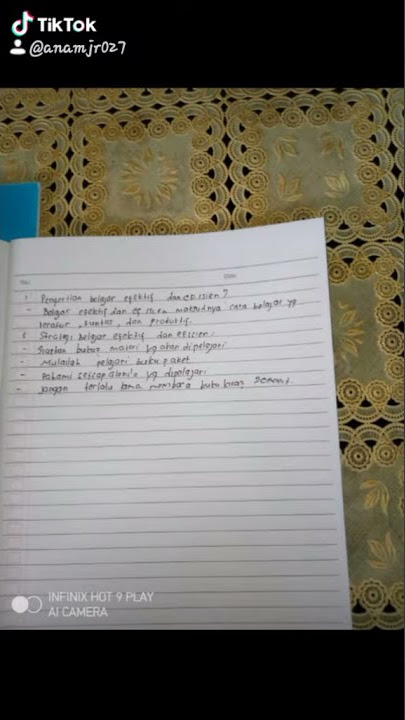 TikTok
@anamjr027
No:
Date:
1 Pengertian belajar efektif dan efisien?
- Belajar efektif dan efisien maksudnya cara belajar yg
teratur, tuntas, dan produktif.
Strategi belajar efektif dan efisien:
- Siapkan buku materi yg akan dipelajari
- Mulailah pelajari buku paket
- Pahami setiap yg dipelajari
- Jangan terlalu lama membaca buku
INFINIX HOT 9 PLAY
AI CAMERA